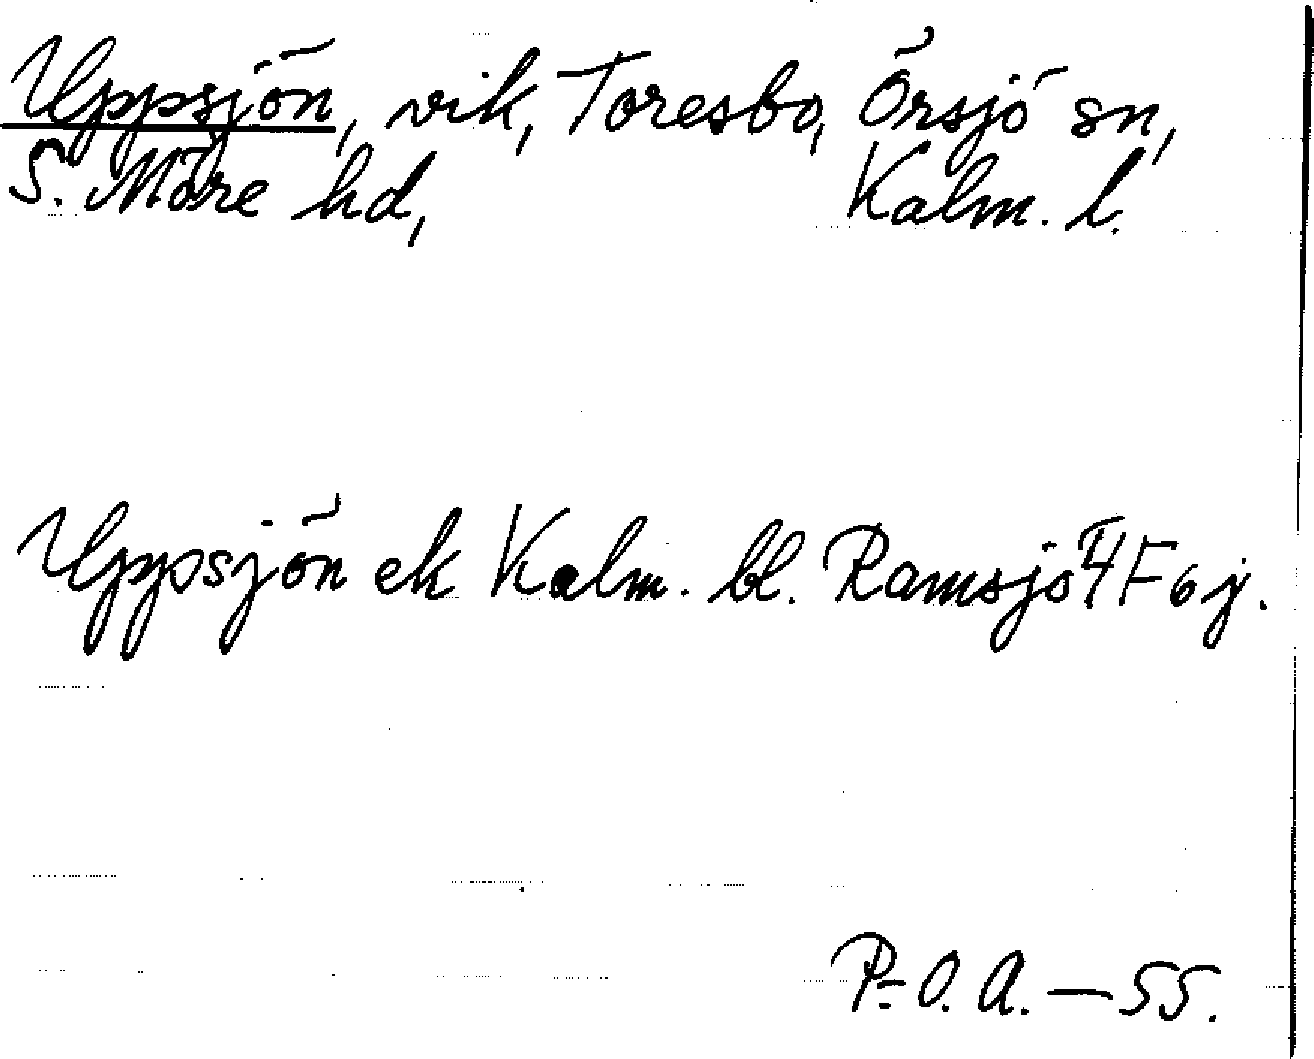 Uppsjön, vik, Toresbo, Örsjö sn,
S. Möre hd, Kalm. l.
Uppsjön ek Kalm. bl. Ramsjö 4F6j.
P-O. A. — 55.